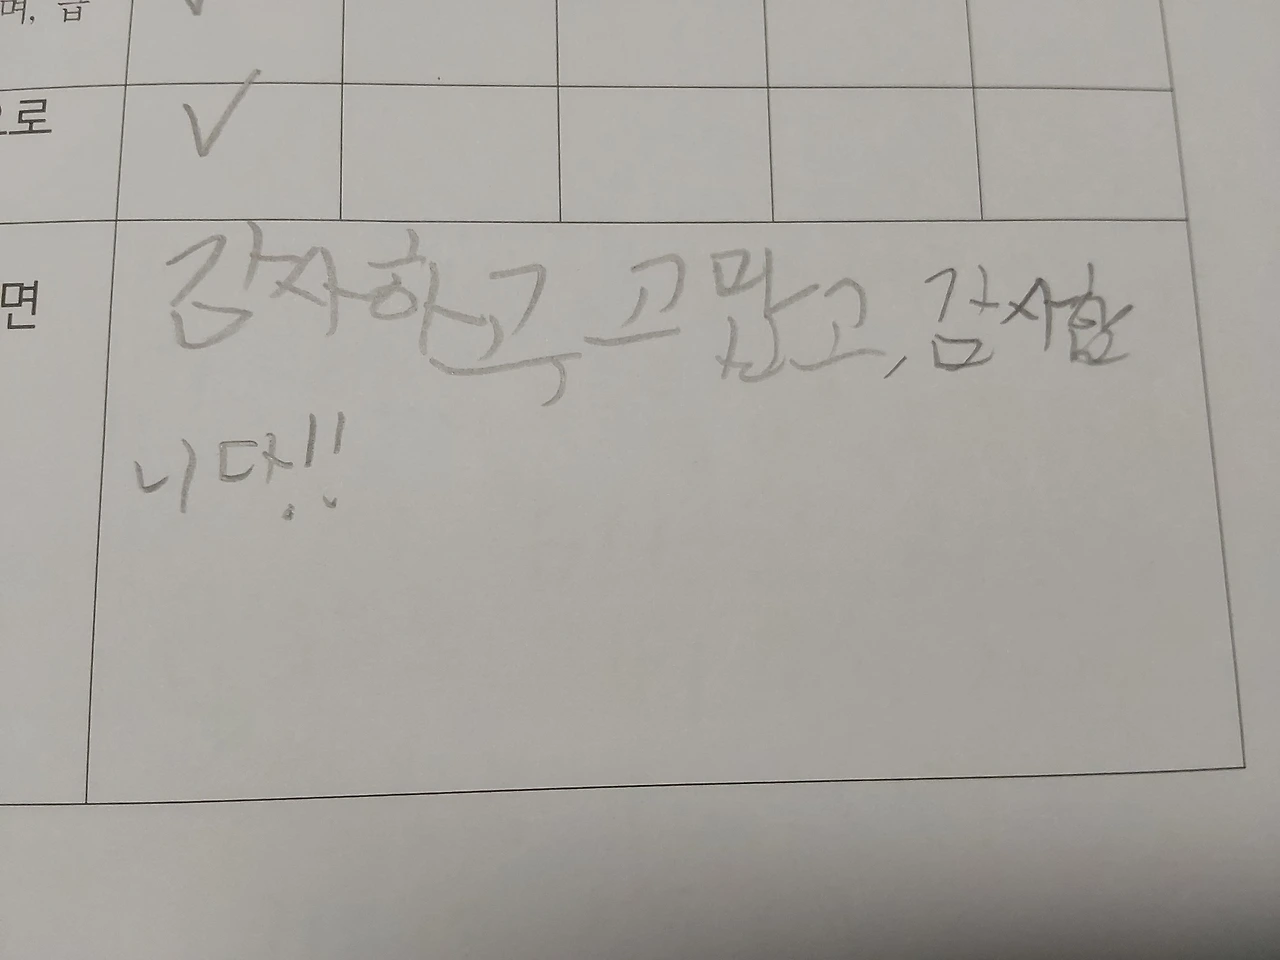 며, 급
으로
면
감사하구 고맙고, 감사합
니다!!